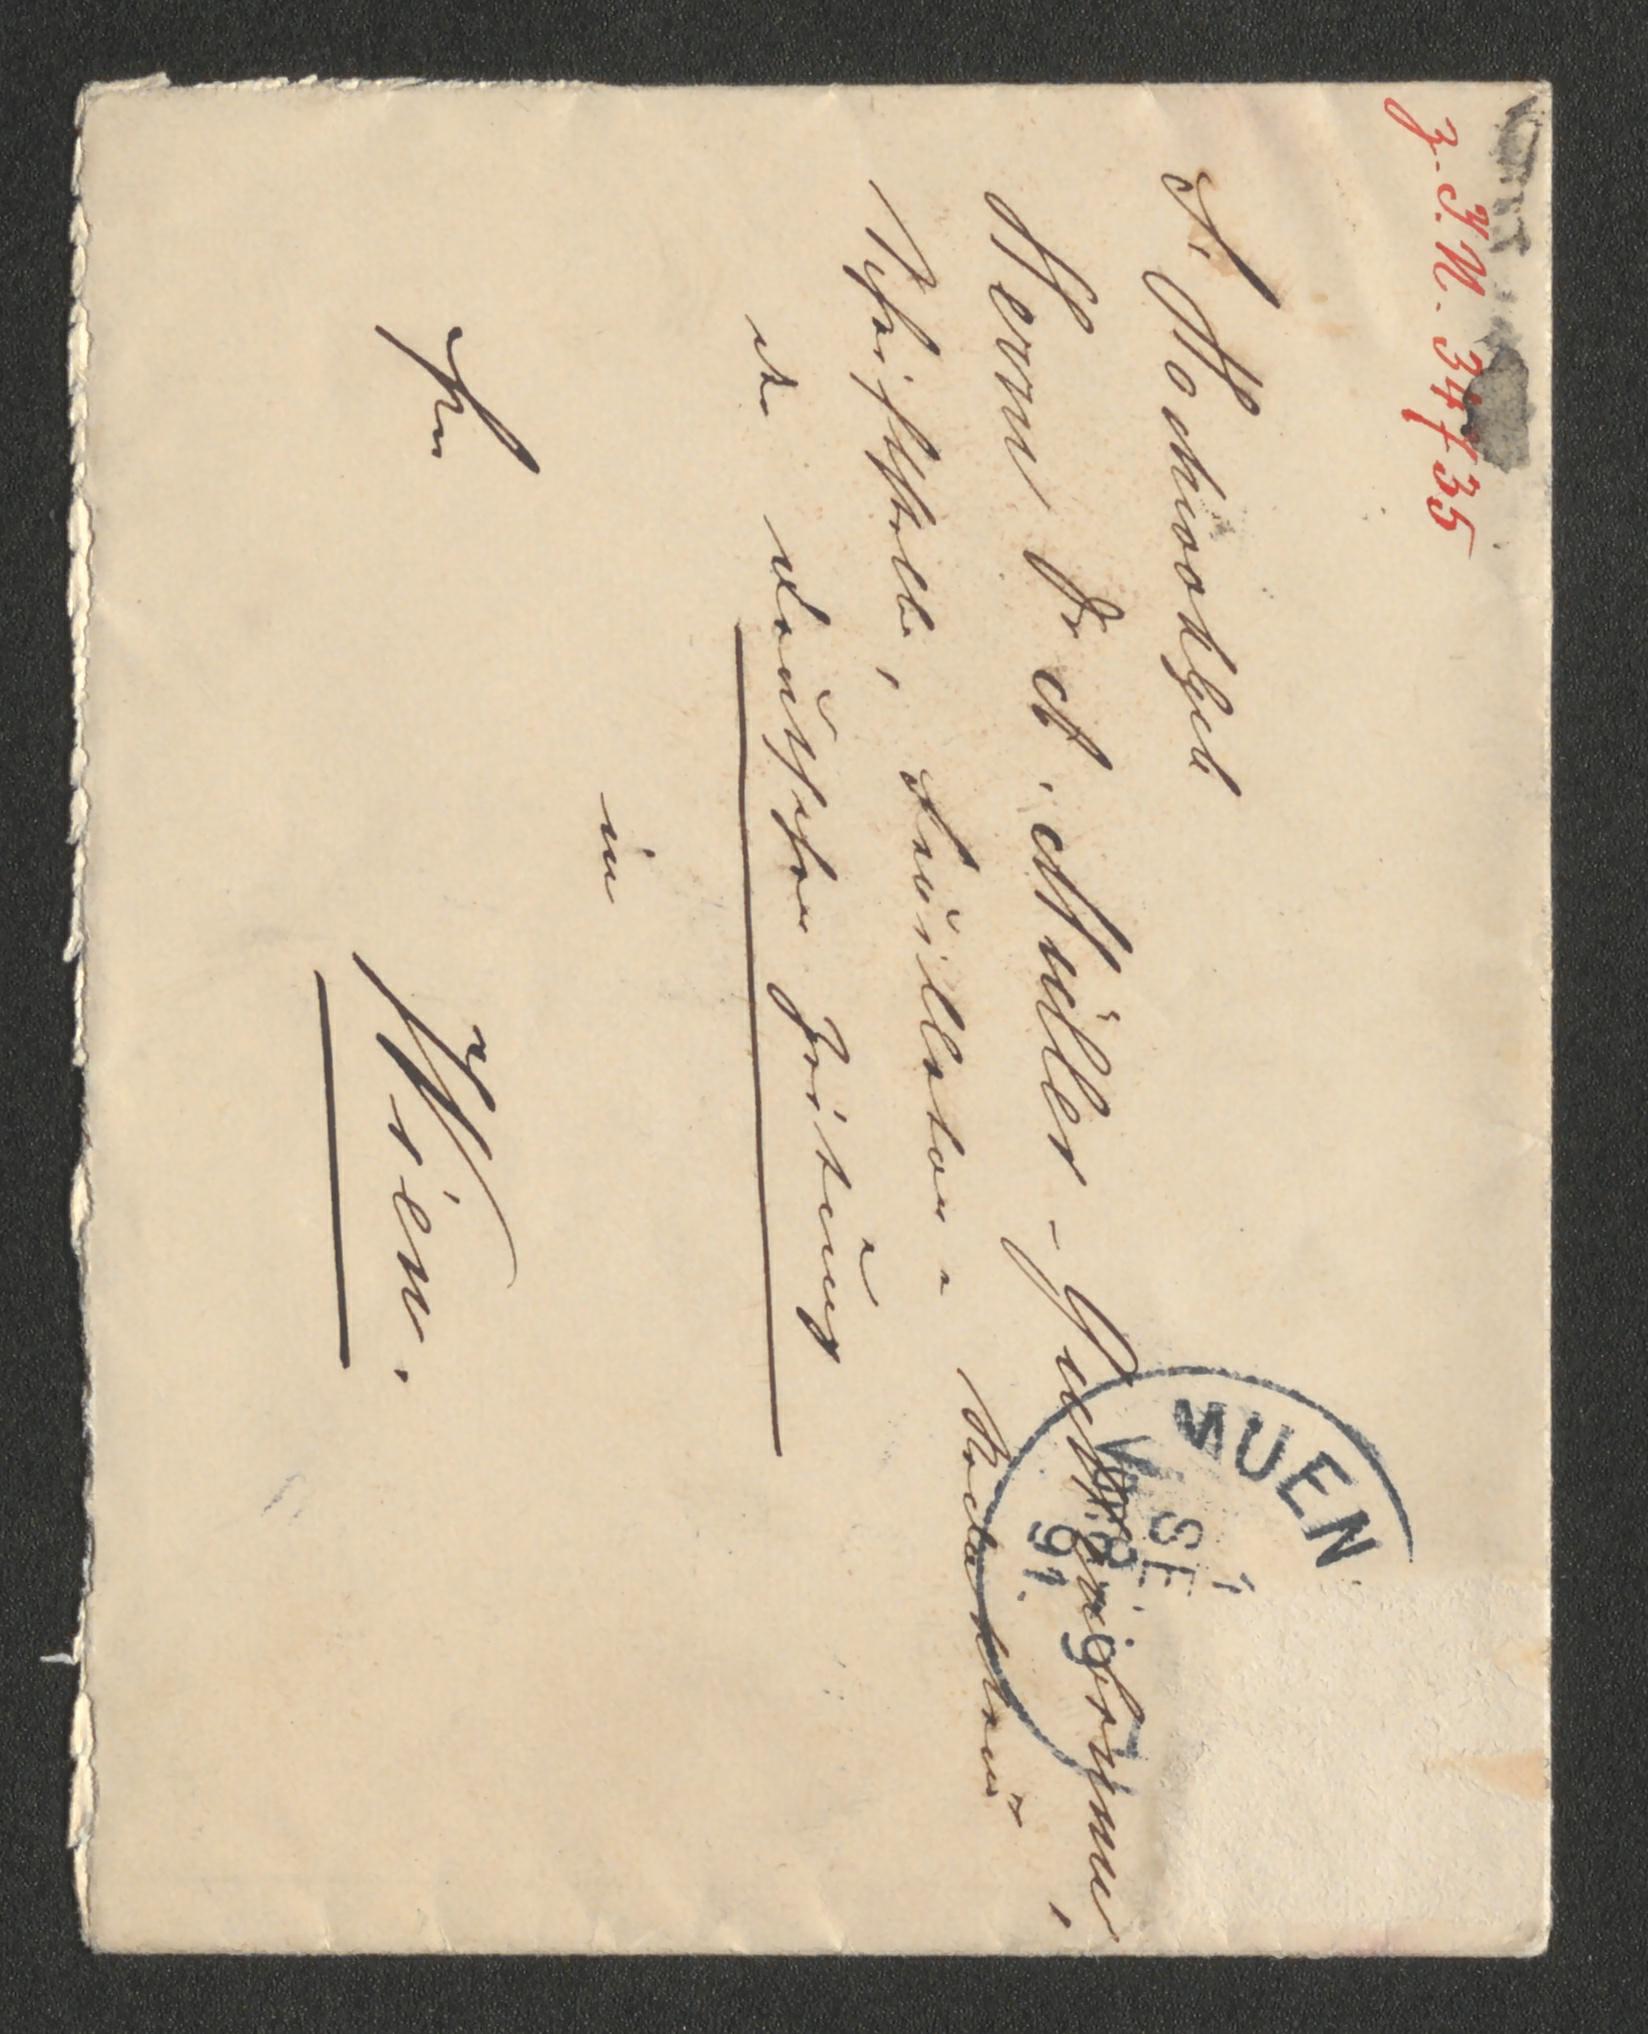 z. I.N. 34735
S. Hochwohlgeb.
Herrn Dr A. Müller-Guttenbrunn,
Schriftsteller, Feuilleton-Redakteur
der Deutschen Zeitung
in
Wien.
MUEN
1.
SE
8-9
91.